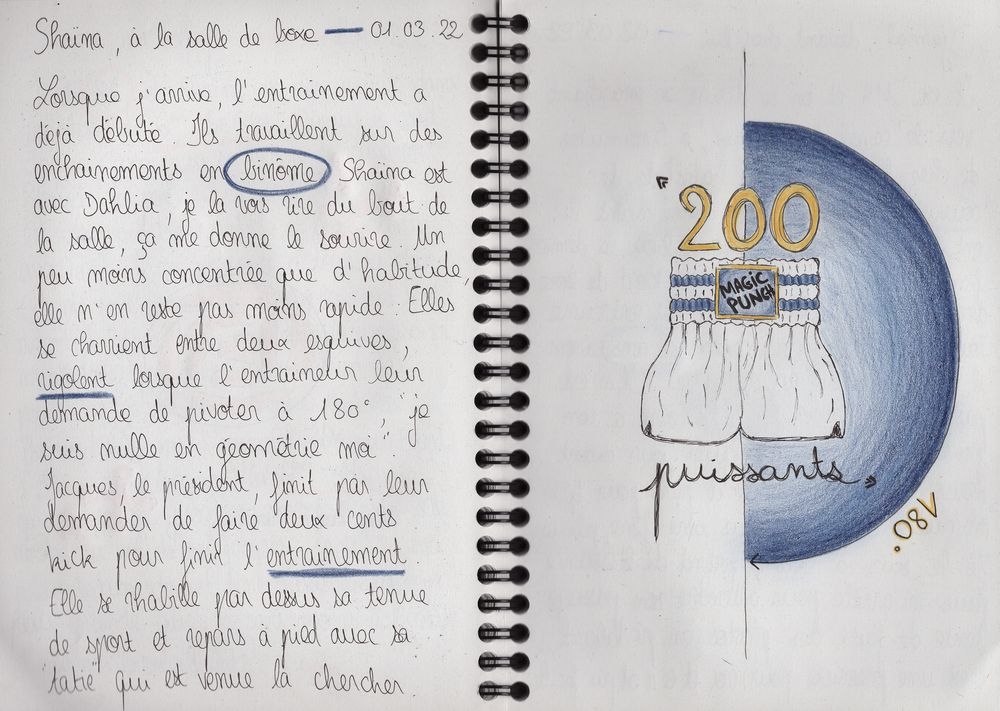 Shaïna, à la salle de boxe — 01.03.22
Lorsque j'arrive, l'entrainement a
déjà débuté. Ils travaillent sur des
enchainements en binôme. Shaïna est
avec Dahlia, je la vois rire du bout de
la salle, ça me donne le sourire. Un
peu moins concentrée que d'habitude,
elle n'en reste pas moins rapide. Elles
se charrient entre deux esquives,
rigolent lorsque l'entraineur leur
demande de pivoter à 180°, "je
suis nulle en géométrie moi".
Jacques, le président, finit par leur
demander de faire deux cents
kick pour finir l'entrainement.
Elle se rhabille par dessus sa tenue
de sport et repars à pied avec sa
"tatie" qui est venue la chercher.
"200
MAGIC
PUNCH
puissants"
.08V